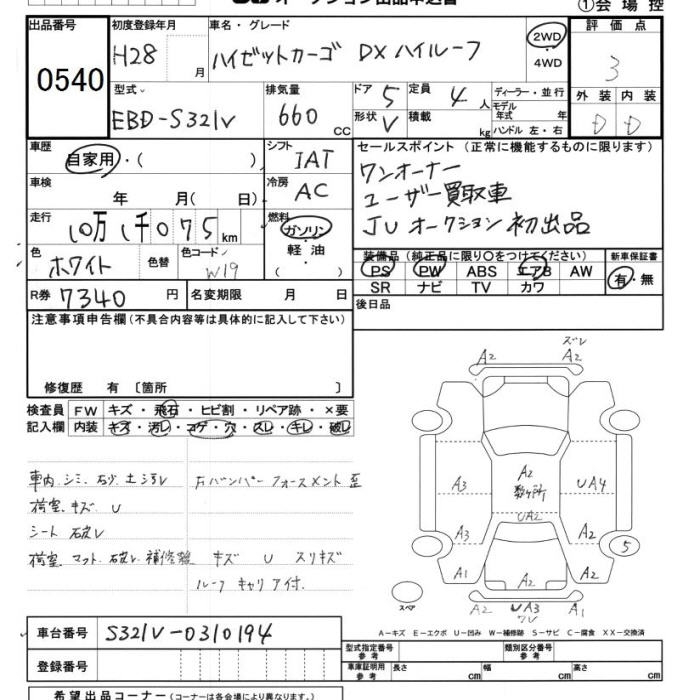 ①会場控
出品番号
0540
初度登録年月
H28 月
車名・グレード
ハイゼットカーゴ DX ハイルーフ
2WD
・
4WD
評価点
3
外装 内装
D D
型式
EBD-S321V
排気量
660 cc
ドア 5
定員 4 人
形状 V
積載 kg
ディーラー・並行
モデル年式 年
ハンドル 左・右
車歴
自家用・( )
シフト
IAT
セールスポイント (正常に機能するものに限ります)
ワンオーナー
ユーザー買取車
JUオークション初出品
車検
年 月( 日)
冷房
AC
走行
10万1千075km
燃料
ガソリン
軽油
( )
色
ホワイト
色替
色コード
W19
装備品(純正品に限り〇をつけてください)
PS PW ABS エアB AW
SR ナビ TV カワ
新車保証書
有・無
R券 7340 円
名変期限 月 日
後日品
注意事項申告欄(不具合内容等は具体的に記入して下さい)
修復歴 有〔箇所 〕
検査員
記入欄
FW キズ・飛石・ヒビ割・リペア跡・×要
内装 キズ・汚レ・コゲ・穴・スレ・キレ・破レ
車内 シミ 土汚レ
荷室 キズ U
シート 破レ
荷室 マット 破レ 補修
Fバンパー
キズ U スリキズ
ルーフ キャリア付.
ズレ
A2 A2
A2
数ヶ所
A3 UA4
UA2
A3 A2
5
A1 A2 A2
A2 UA3 A1
スペア
A-キズ E-エクボ U-凹み W-補修跡 S-サビ C-腐食 XX-交換済
車台番号 S321V-0310194
登録番号
型式指定番号
参考
類別区分番号
参考
車庫証明用
参考
長さ cm 幅 cm 高さ cm
希望出品コーナー(コーナーは各会場により異なります。)